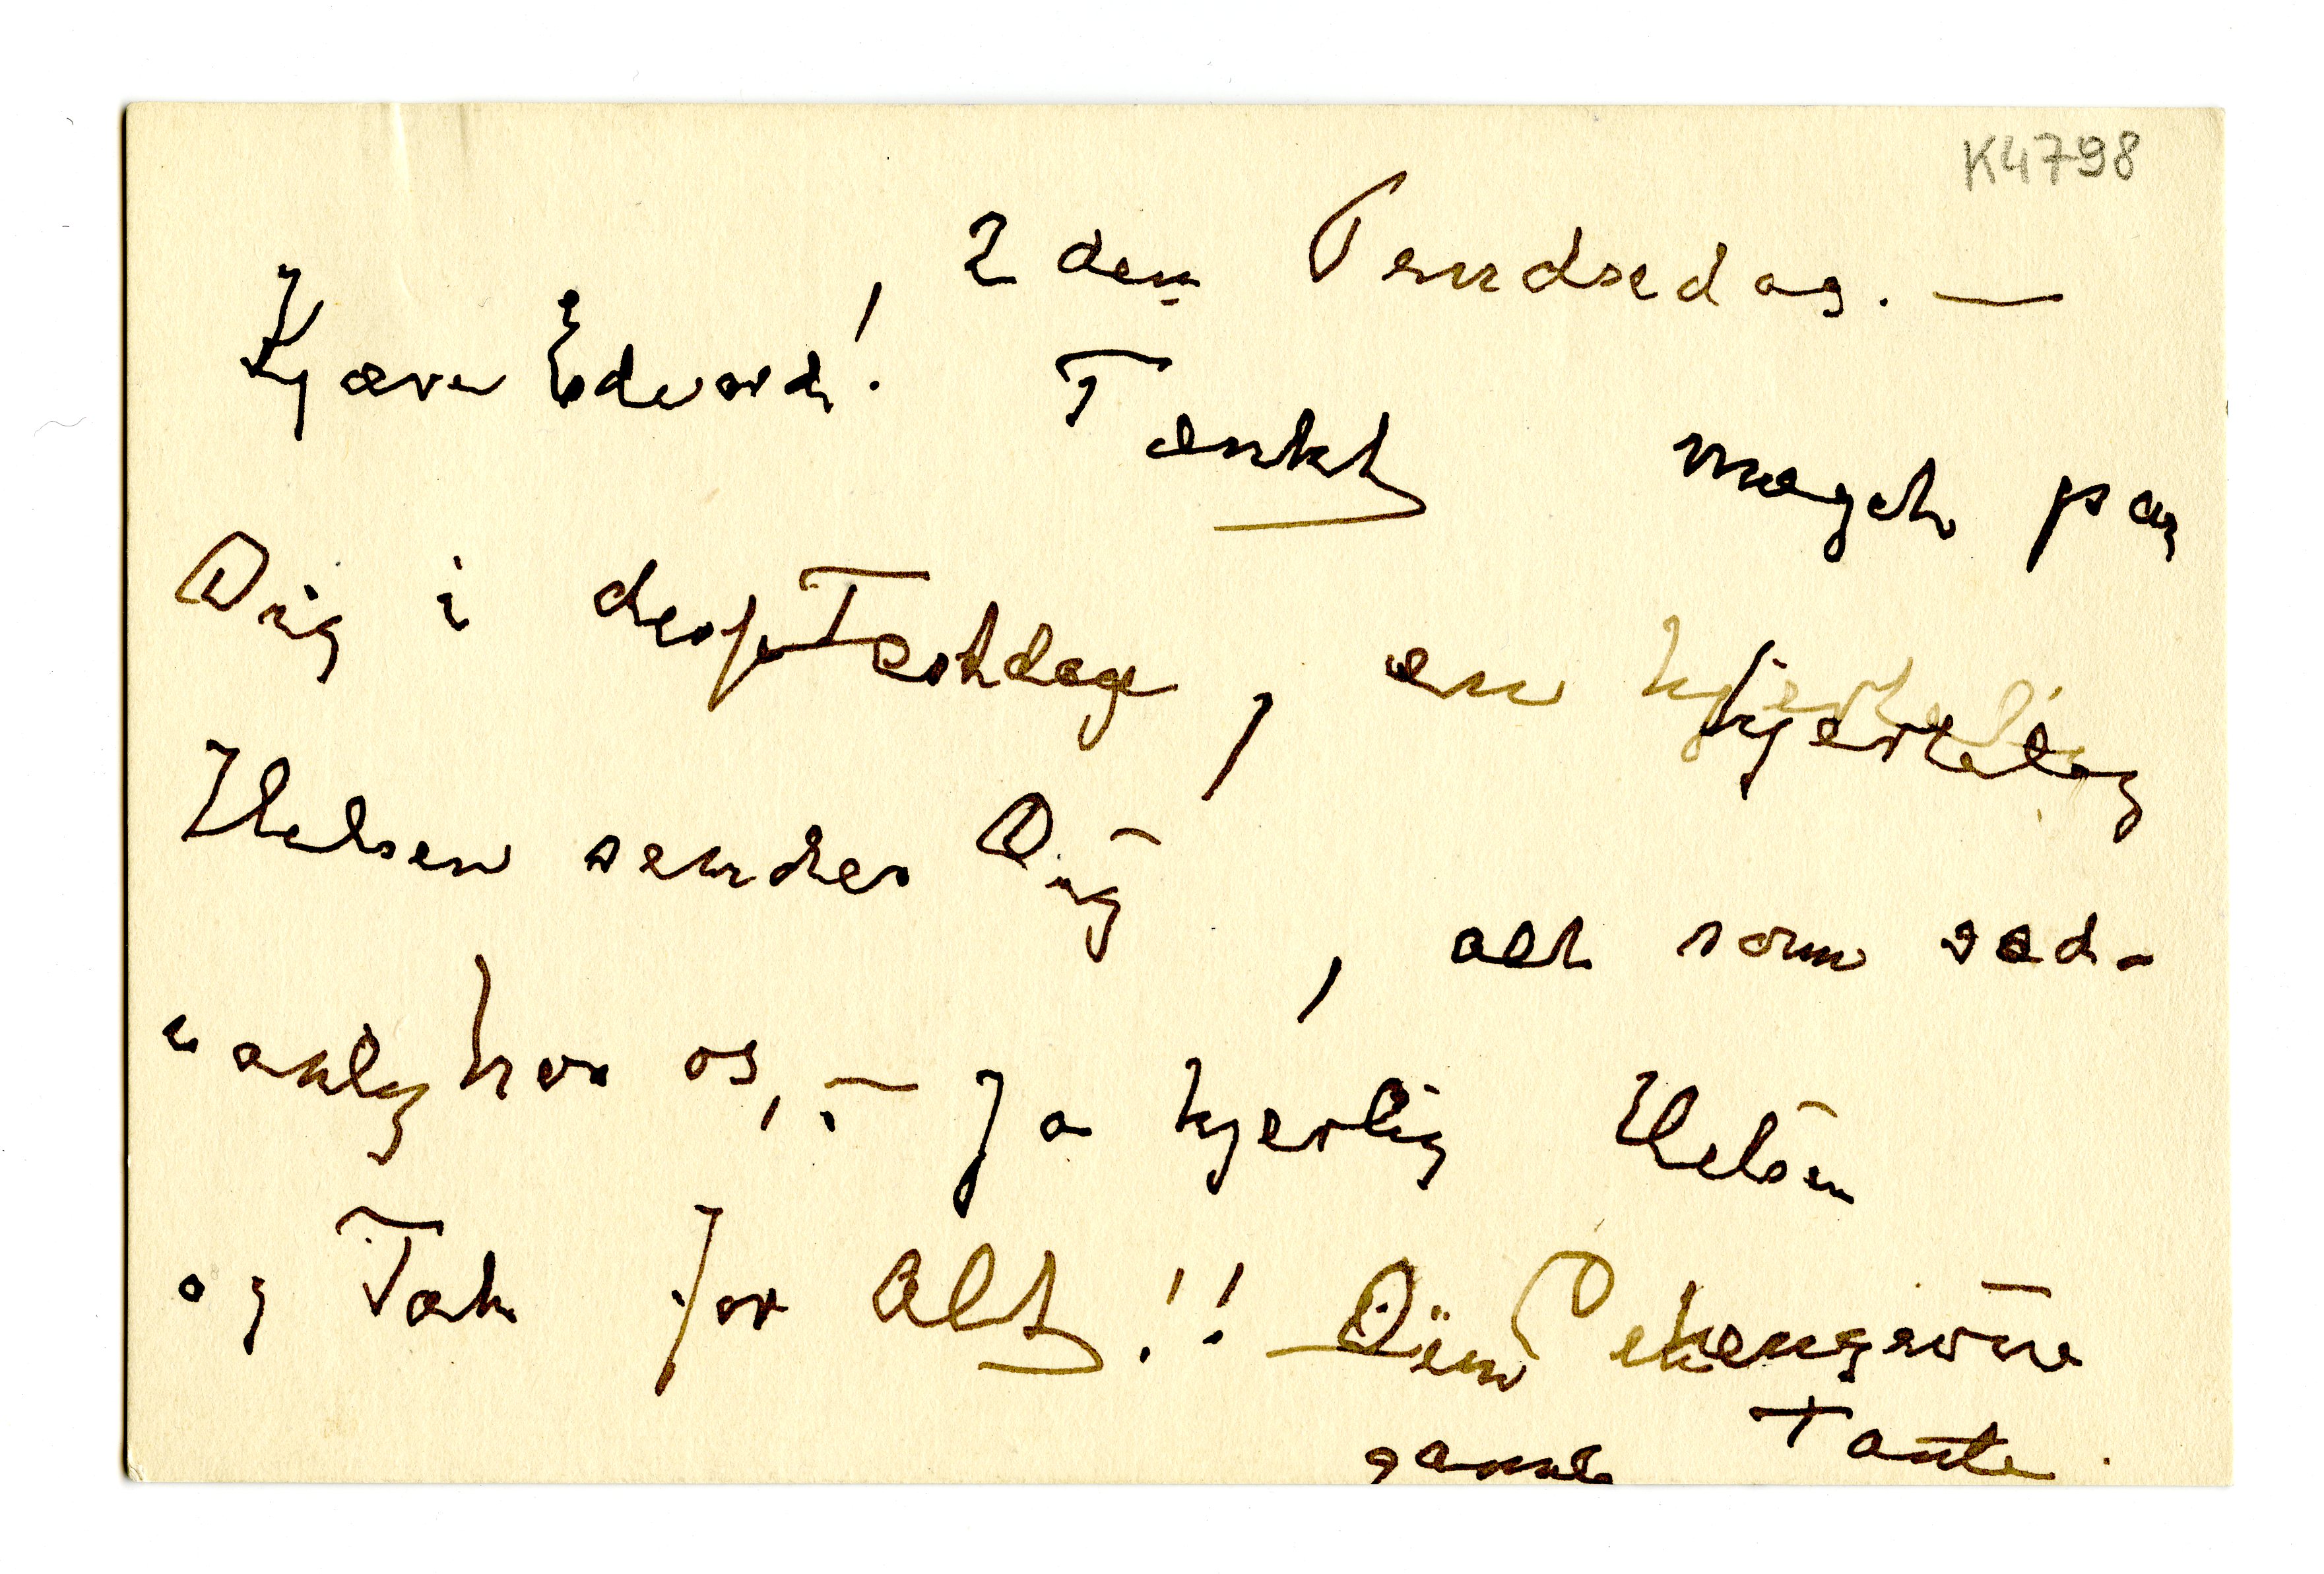 K4798
2den Pindsedag. —
Kjære Edvard! Tænkt meget paa
Dig i disse Festdage, en hjertelig
Hilsen sendes Dig, alt som sæd-
vanlig hos os, — Ja hjertlig Hilsen
og Tak for Alt!! Din hengivne
gamle Tante.